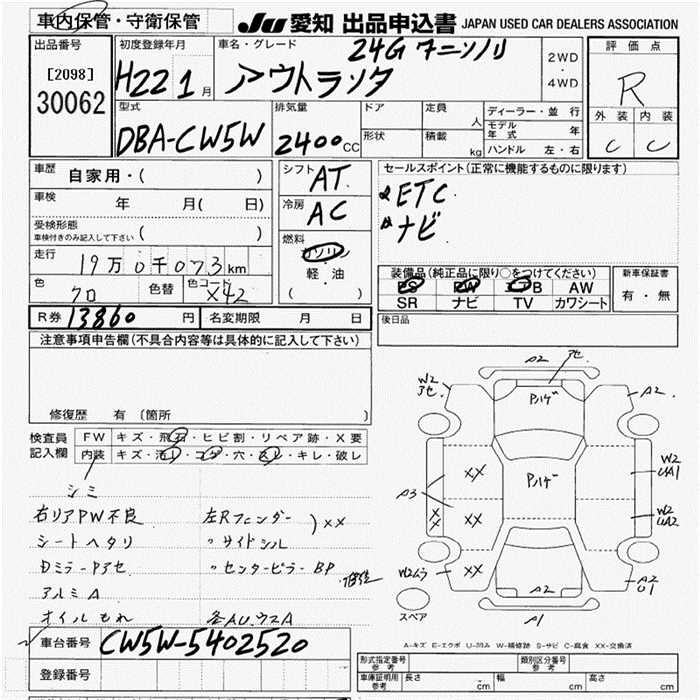 車内保管・守衛保管 JU 愛知 出品申込書 JAPAN USED CAR DEALERS ASSOCIATION
出品番号 初度登録年月 車名・グレード 24G 評価点
[2098]
30062
H22 1月 アウトランダ
2WD
・
4WD
R
型式 排気量 ドア 定員 人 ディーラー・並行 外装 内装
DBA-CW5W 2400CC 形状 積載 kg モデル年式 年
ハンドル 左・右 C C
車歴 自家用・( ) シフト AT セールスポイント(正常に機能するものに限ります)
車検 年 月( 日) 冷房 AC ETC
受検形態 ( ) ナビ
車検付きのみ記入して下さい
走行 19万0千073km 燃料 ガソリン 装備品(純正品に限り○をつけてください) 新車保証書
色 クロ 色替 色コード X42 軽・油 PS PW ABS AW 有・無
( ) SR ナビ TV カワシート
R券 13860円 名変期限 月 日 後日品
注意事項申告欄(不具合内容等は具体的に記入して下さい)
修復歴 有(箇所 )
検査員 FW キズ・飛石・ヒビ割・リペア跡・X要
記入欄 内装 キズ・汚レ・コゲ・穴・スレ・キレ・破レ
シミ
右リアPW不良 左Rフェンダー
シートヘタリ 〃サイドシル )XX
Dミラーアセ 〃センターピラーBP 修復
アルミA
オイルもれ 各AUウスA
車台番号 CW5W-5402520
登録番号
A2 アセ
W2 アセ Pハゲ A2
XX Pハゲ W2 UA1
A3 XX XX W2 UA2
W2ムラ XX A2 A2 U1
スペア A1
A-キズ E-エクボ U-凹み W-補修跡 S-サビ C-腐食 XX-交換済
形式指定番号 参考 類別区分番号 参考
車庫証明用 参考 長さ cm 幅 cm 高さ cm